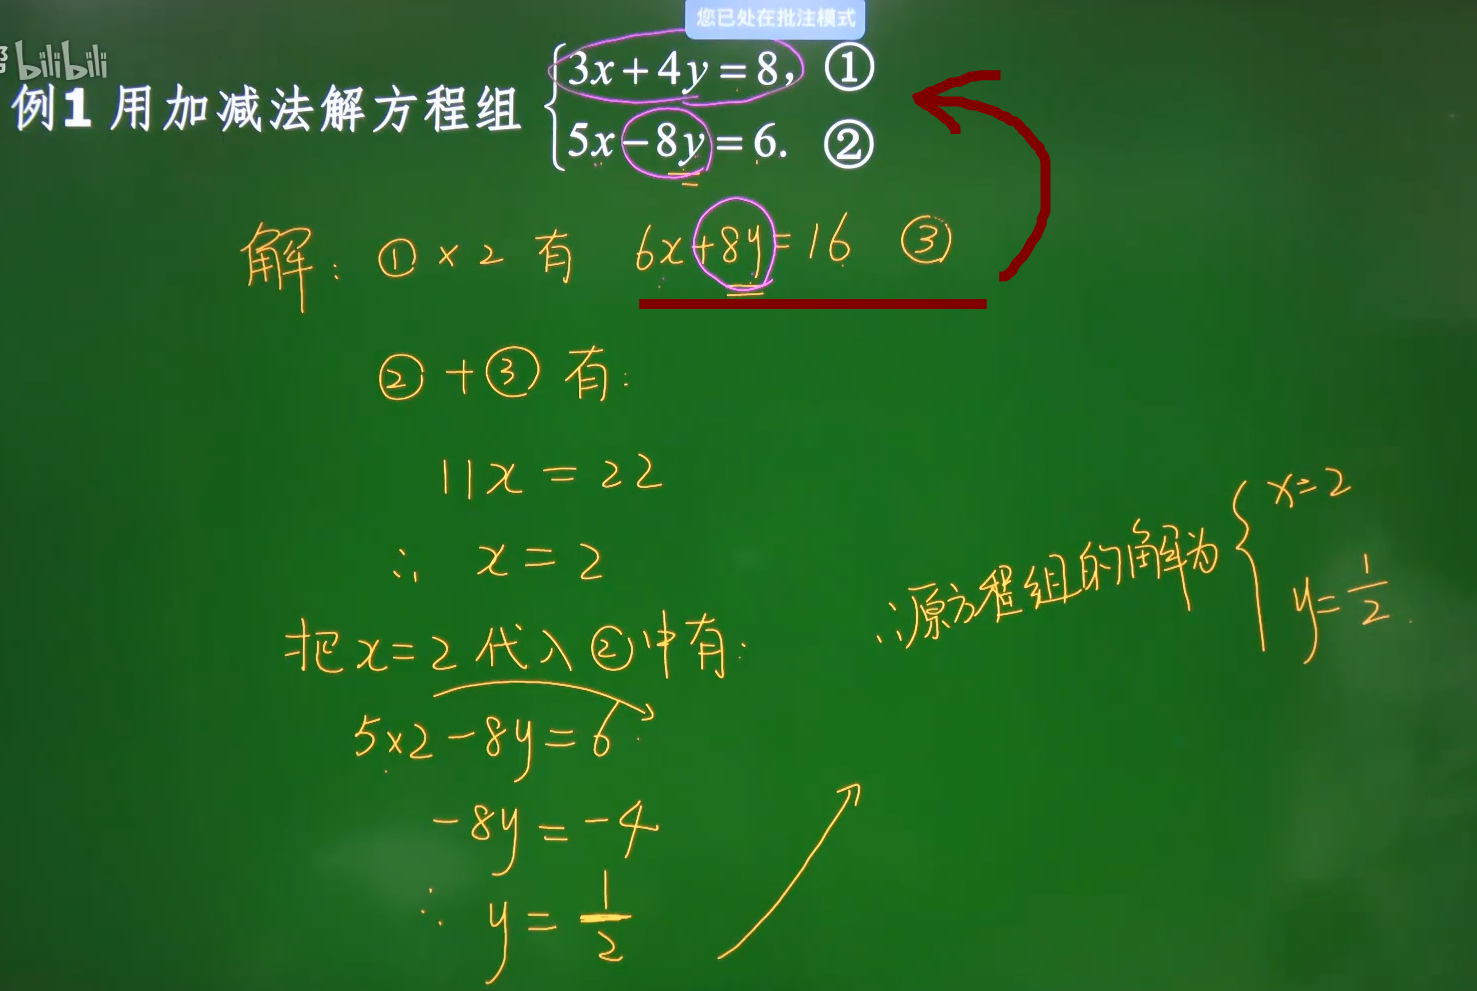 您已处在批注模式
bilibili
例1 用加减法解方程组 {3x+4y=8, ①
5x-8y=6. ②
解: ①×2 有 6x+8y=16 ③
②+③有:
11x=22
∴ x=2
把x=2代入②中有:
5×2-8y=6
-8y=-4
∴ y=1/2
∴原方程组的解为{x=2
y=1/2.